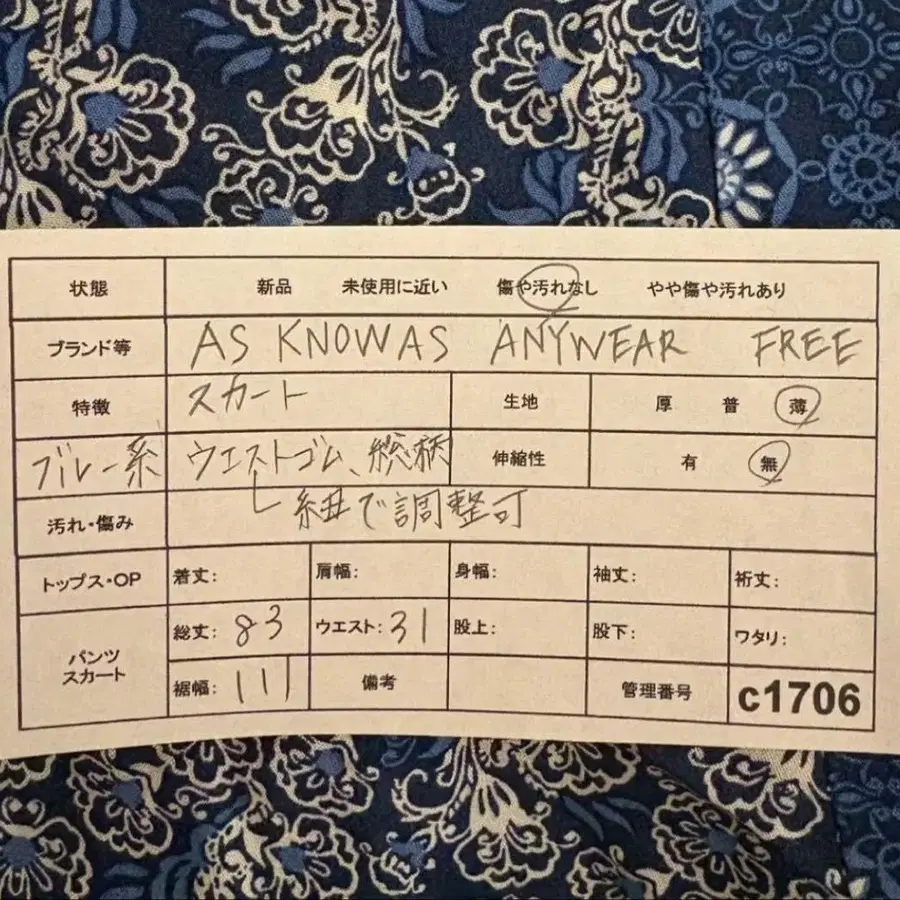 状態 新品 未使用に近い 傷や汚れなし やや傷や汚れあり
ブランド等 AS KNOW AS ANYWEAR FREE
特徴 スカート 生地 厚 普 薄
ブルー系 ウエストゴム、総柄 伸縮性 有 無
└ 紐で調整可
汚れ・傷み
トップス・OP 着丈: 肩幅: 身幅: 袖丈: 裄丈:
パンツ スカート 総丈: 83 ウエスト: 31 股上: 股下: ワタリ:
裾幅: 111 備考 管理番号 c1706